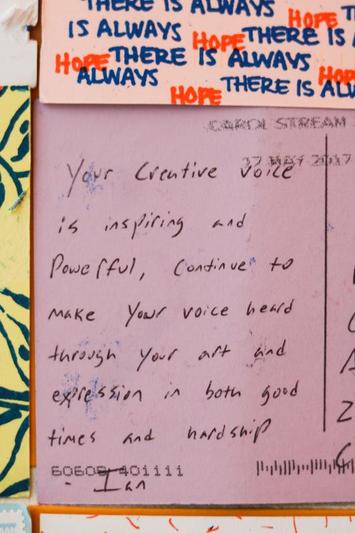 THERE IS ALWAYS HOPE
IS ALWAYS HOPE THERE IS
HOPE THERE IS ALWAYS
ALWAYS THERE IS ALW
HOPE
CAROL STREAM
17 MAY 2017
Your Creative voice
is inspiring and
Powerfull, Continue to
make your voice heard
through your art and
expression in both good
times and hardship
60608 401111
- Ian